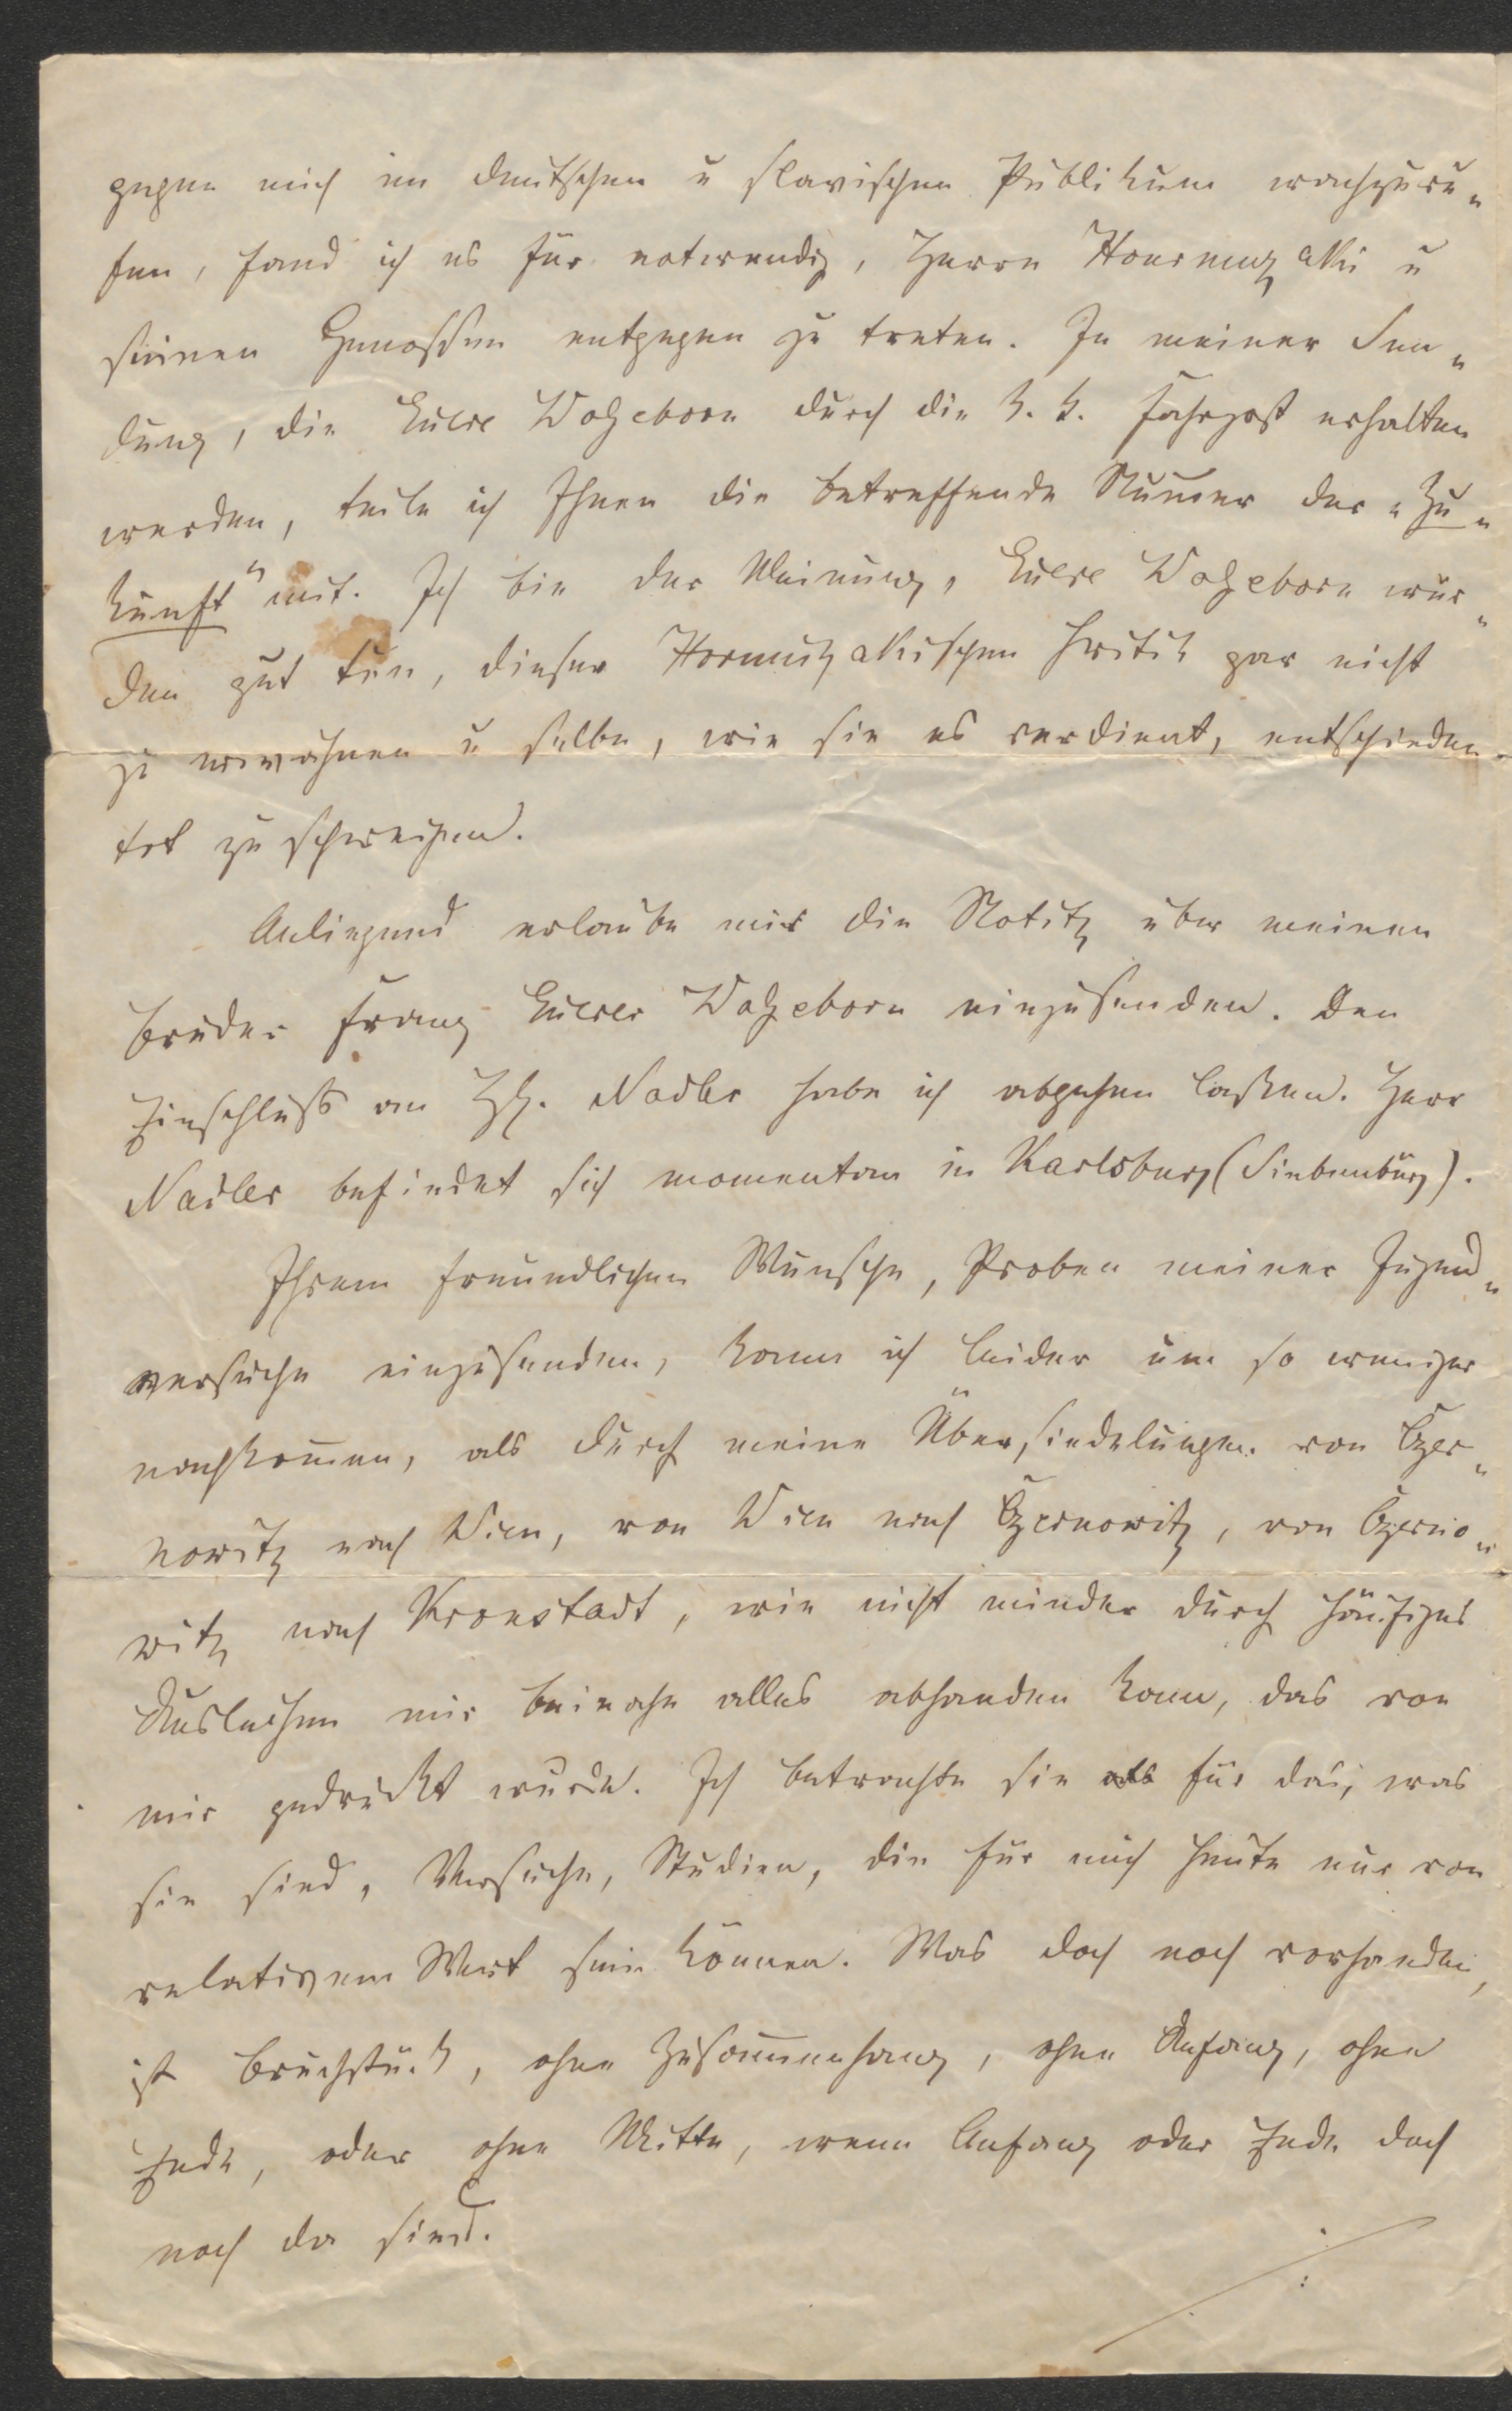 gegen mich im deutschen u slavischen Publikum wachzuru„
fen, fand ich es für notwendig, Herrn Hourmuzaki u
seinen Genossen entgegen zu treten. In meiner Sen„
dung, die Euere Wolgeborn durch die k. k. Fahrpost erhalten
werden, teile ich Ihnen die betreffende Num̄er der „Zu„
kunft“ mit. Ich bin der Meinung, Euere Wolgeborn wür„
den gut tun, dieser Hormuzakischen Kritik gar nicht
zu erwähnen u selbe, wie sie es verdient, entschieden
tot zu schweigen.
Anliegend erlaube mir die Notitz über meinen
Bruder Franz Euerer Wolgeborn einzusenden. Den
Einschluß an H. Nadler habe ich abgehen laßen. Herr
Nadler befindet sich momentan in Karlsburg (Siebenbürg).
Ihrem freundlichen Wunsche, Proben meiner Jugend„
versuche einzusenden, kann ich leider um so weniger
nachkom̄en, als durch meine Übersiedelungen von Czer„
nowitz nach Wien, von Wien nach Czernowitz, von Czerno„
witz nach Kronstadt, wie nicht minder durch häufiges
Ausleihen mir beinahe alles abhanden kam, das von
mir gedruckt wurde. Ich betrachte sie als für das, was
sie sind, Versuche, Studien, die für mich heute nur von
relativem Wert sein können. Was doch noch vorhanden,
ist Bruchstück, ohne Zusam̄enhang, ohne Anfang, ohne
Ende, oder ohne Mitte, wenn Anfang oder Ende doch
noch da sind.
./.